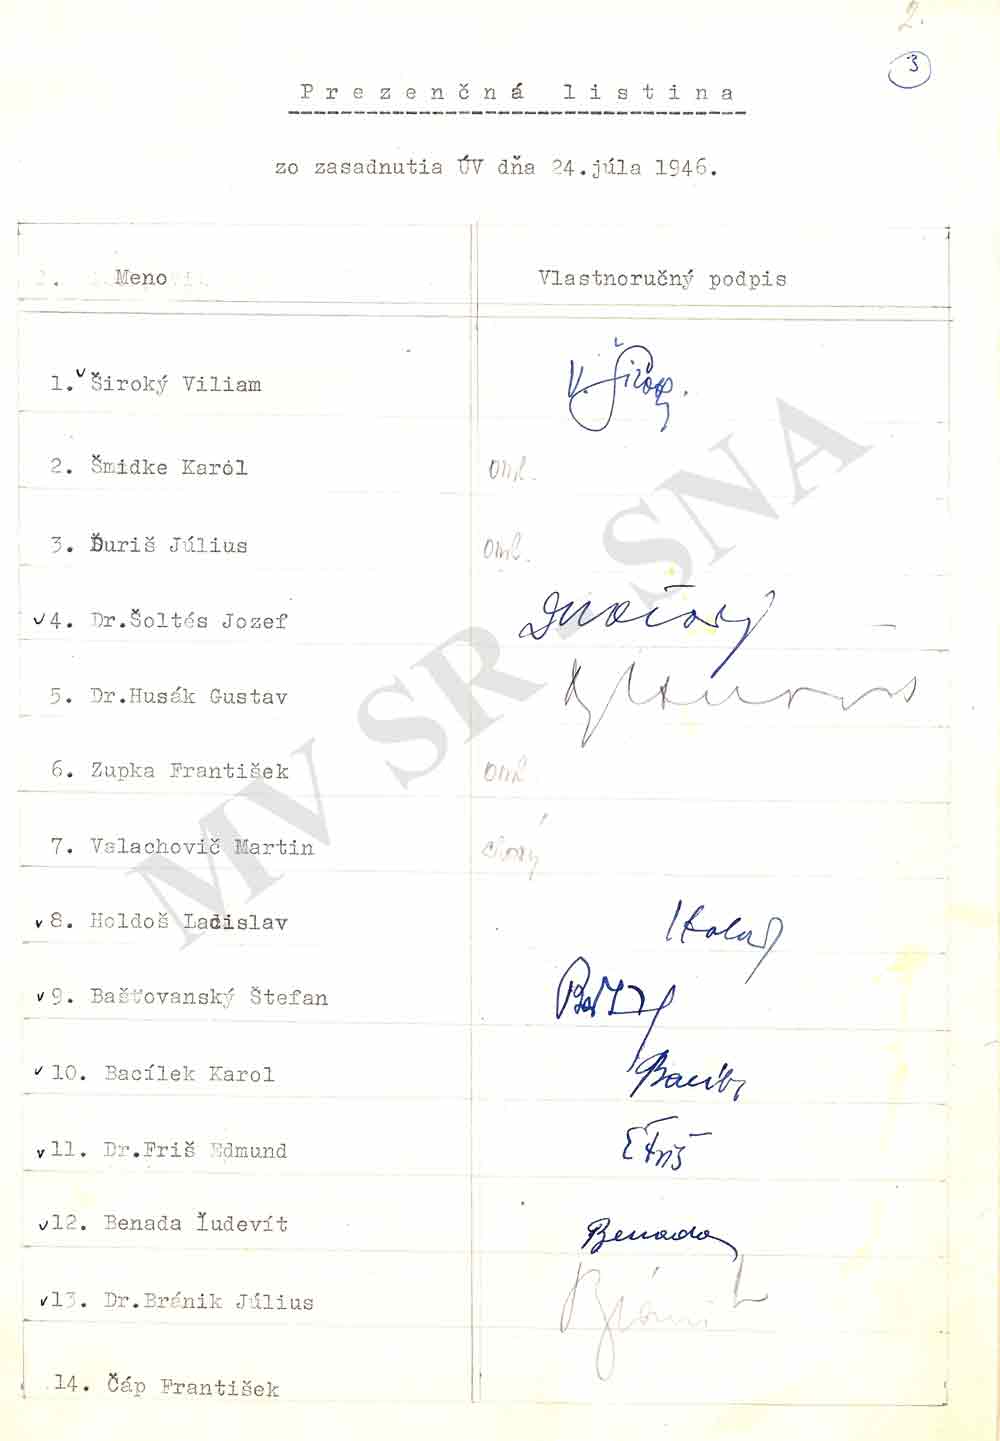 2.
3
Prezenčná listina
zo zasadnutia ÚV dňa 24.júla 1946.
Meno Vlastnoručný podpis
1. Široký Viliam V. Široký
2. Šmidke Karól oml.
3. Ďuriš Július oml.
4. Dr.Šoltés Jozef
5. Dr.Husák Gustav
6. Zupka František oml.
7. Valachovič Martin
8. Holdoš Ladislav
9. Bašťovanský Štefan
10. Bacílek Karol
11. Dr.Friš Edmund E Friš
12. Benada Ľudevít Benada
13. Dr.Bránik Július
14. Čáp František
MV SR - SNA